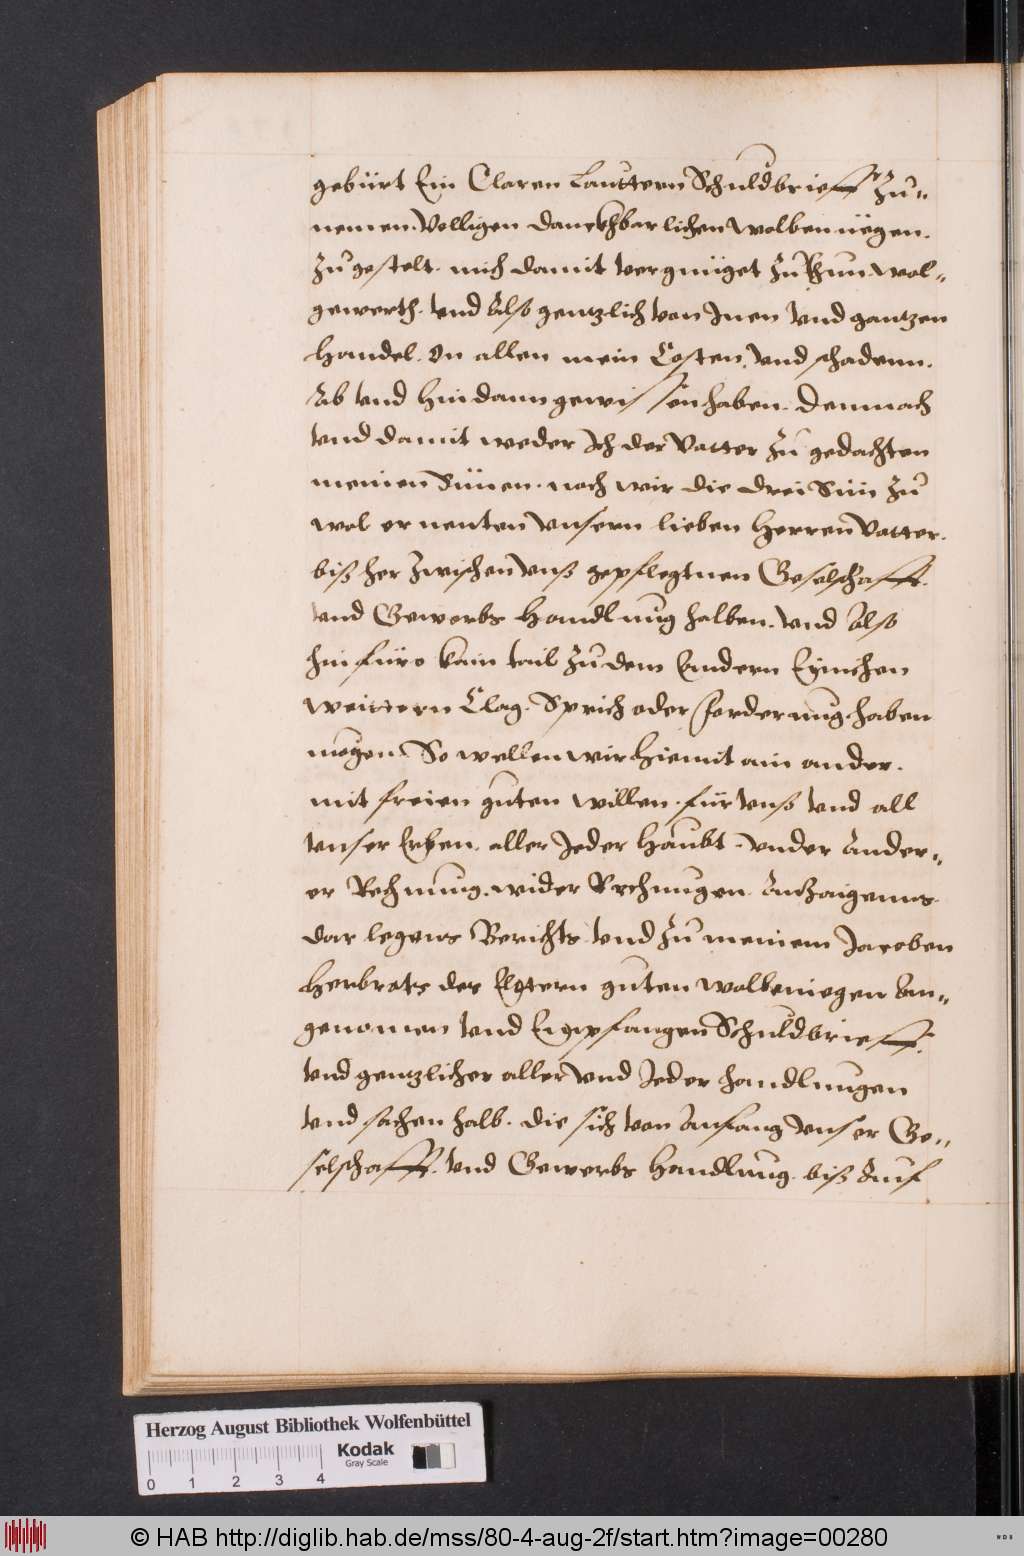 gebürt Ein Claren Lauttern Schuldbrieff Zu-
nemen. Volligen danckhbarlichen wolbenüegen.
Zugestelt. mich damit vergnüget Zu Thun. wol-
gewerth. vnd Also gentzlich von Inen vnd gantzen
Handel. On allen mein Costen, vnd schadenn.
Ab vnd hindann gewissen haben. Demnach
vnd damit weder Ich der Vatter Zu gedachten
meinen Sünen. noch wir die drei Sün Zu
wol ernenten vnsern lieben Herren Vatter.
biß her Zwischen vnß gepflegtnen Geselschafft.
vnd Gewerbs Handlung halben. vnd Also
hinfüro kain tail Zu dem Andern Eynichen
weittern Clag. Sprich oder forderung haben
mögen. So wellen wir hiemit ain ander.
mit freien guten willen. für vnß vnd all
vnser Erben. aller Jeder Haubt. vnder Ander-
er Rechnung. wider Rechnungen. Anzaigenns.
dar legens Berichts vnd Zu meinem Jacoben
Herbrots des Eltern guten wolbeniegen An-
genomen vnd Empfangen Schuldbrieff.
vnd gentzlicher aller vnd Jeder handlungen
vnd sachen halb. die sich von Anfang vnser Ge-
selschafft. vnd Gewerbs Handlung. biß Auf
Herzog August Bibliothek Wolfenbüttel
Kodak
Gray Scale
0 1 2 3 4
© HAB http://diglib.hab.de/mss/80-4-aug-2f/start.htm?image=00280